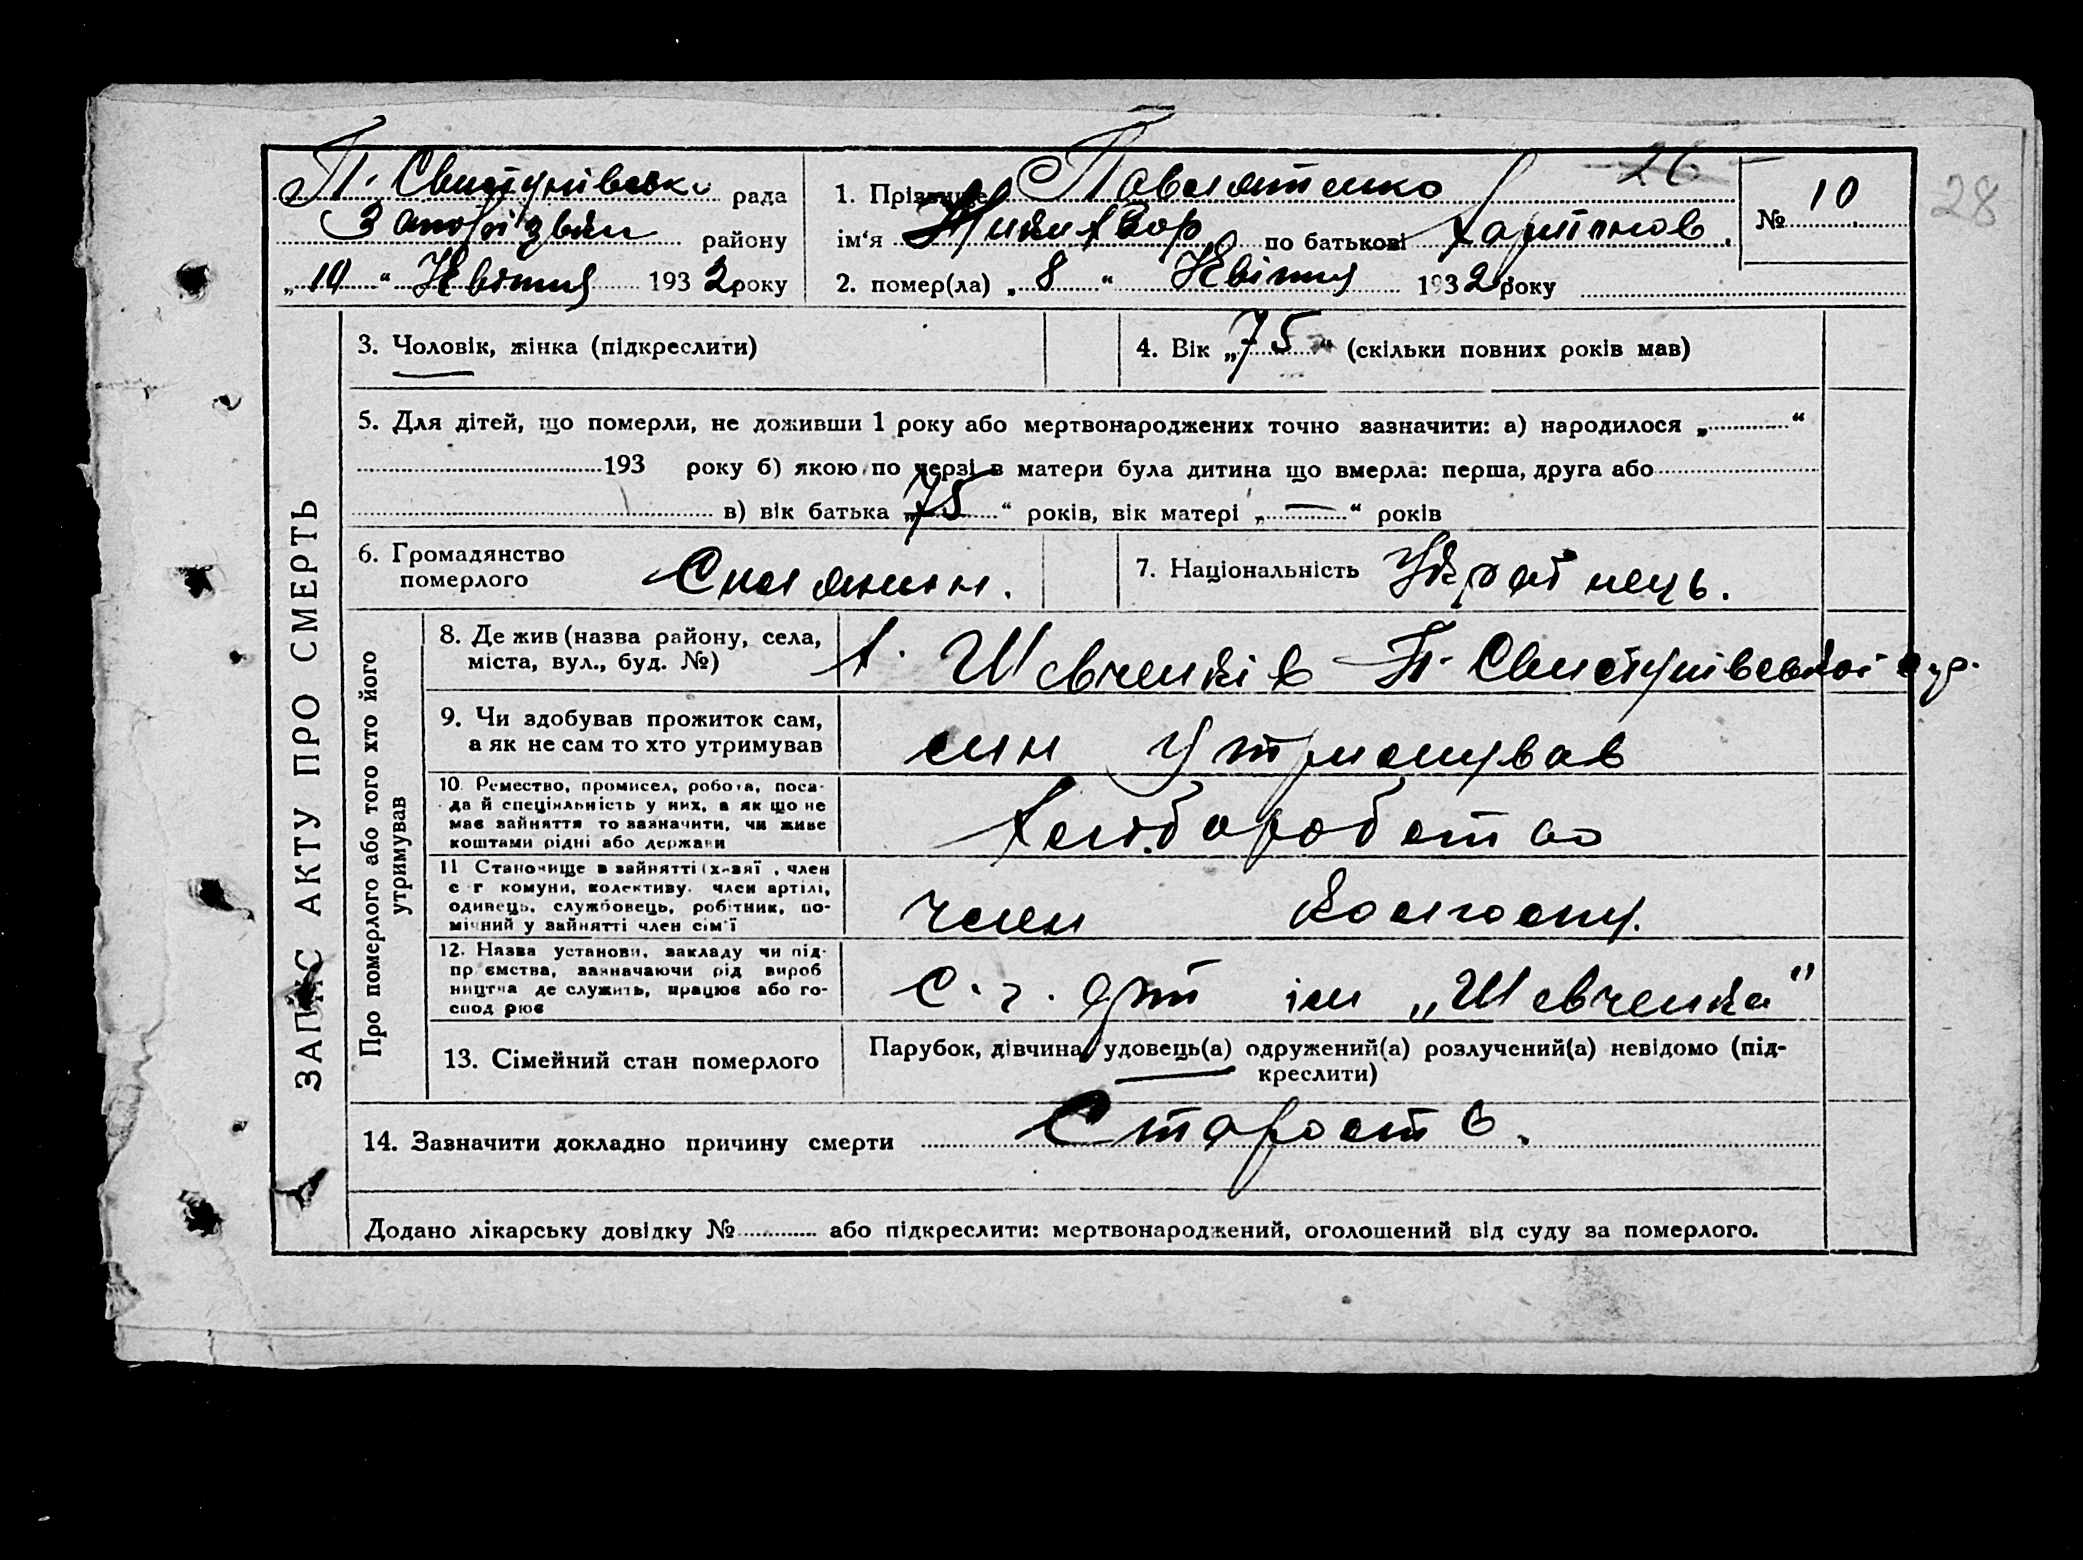 П. Свистунівськ. рада
Запорізьк. району
„10“ Квітня 1932 року
1. Прізвище Павлятенко
ім‘я по батькові Харитонов.
2. помер(ла) „8“ Квітня 1932 року
26
№ 10
28
ЗАПИС АКТУ ПРО СМЕРТЬ
3. Чоловік, жінка (підкреслити)
4. Вік „75“ (скільки повних років мав)
5. Для дітей, що померли, не доживши 1 року або мертвонароджених точно зазначити: а) народилося „ “
193 року б) якою по черзі в матери була дитина що вмерла: перша, друга або
в) вік батька „75“ років, вік матері „—“ років
6. Громадянство
померлого
Селянин.
7. Національність Українець.
Про померлого або того хто його
утримував
8. Де жив (назва району, села,
міста, вул., буд. №)
х. Шевченків П. Свистунівської с/р.
9. Чи здобував прожиток сам,
а як не сам то хто утримував
син утримував
10. Ремество, промисел, робота, поса-
да й спеціяльність у них, а як що не
має зайняття то зазначити, чи живе
коштами рідні або держави
Хліборобство
11 Становище в зайнятті (х-зяї , член
с г комуни, колективу. член артілі,
одинець, службовець, робітник, по-
мічний у зайнятті член сім‘ї
член колгоспу.
12. Назва установи, закладу чи під-
пр ємства, зазначаючи рід вироб
ництва де служить, працює або го-
спод рює
С. г. арт ім „Шевченка”
13. Сімейний стан померлого
Парубок, дівчина, удовець(а) одружений(а) розлучений(а) невідомо (під-
креслити)
14. Зазначити докладно причину смерти Старость.
Додано лікарську довідку № або підкреслити: мертвонароджений, оголошений від суду за померлого.